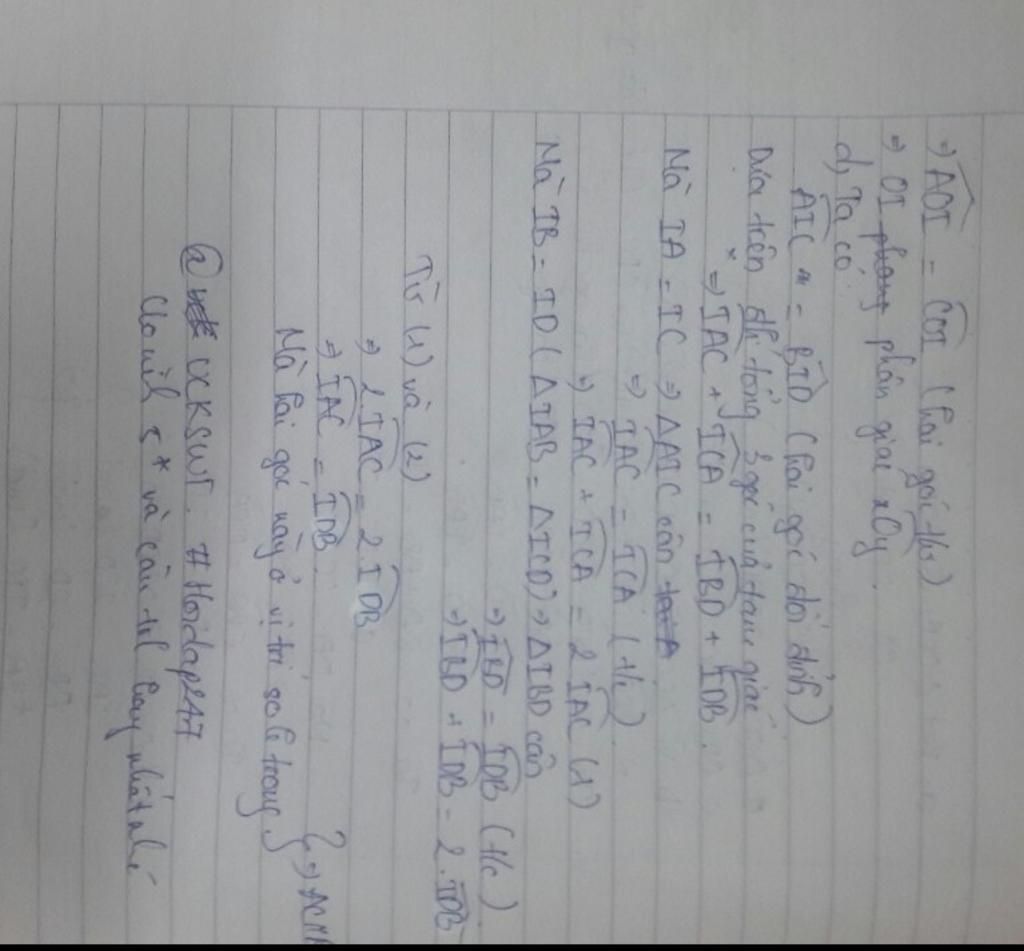 ⇒ AOI = COI (hai góc t/ư)
⇒ OI phân giác xOy.
d, Ta có
AIC = BID (hai góc đối đỉnh)
Dựa trên đlí tổng 3 góc của tam giác
⇒ IAC + ICA = IBD + IDB.
Mà IA = IC ⇒ ΔAIC cân
⇒ IAC = ICA (t/c)
⇒ IAC + ICA = 2 IAC (1)
Mà IB = ID (ΔIAB = ΔICD) ⇒ ΔIBD cân
⇒ IBD = IDB (t/c)
⇒ IBD + IDB = 2. IDB
Từ (1) và (2)
⇒ 2 IAC = 2 IDB.
⇒ IAC = IDB.
Mà hai góc này ở vị trí so le trong } ⇒ AC
@ UCKSWT. #Hoidap247
Cho mình 5* và câu tl hay nhất nhé